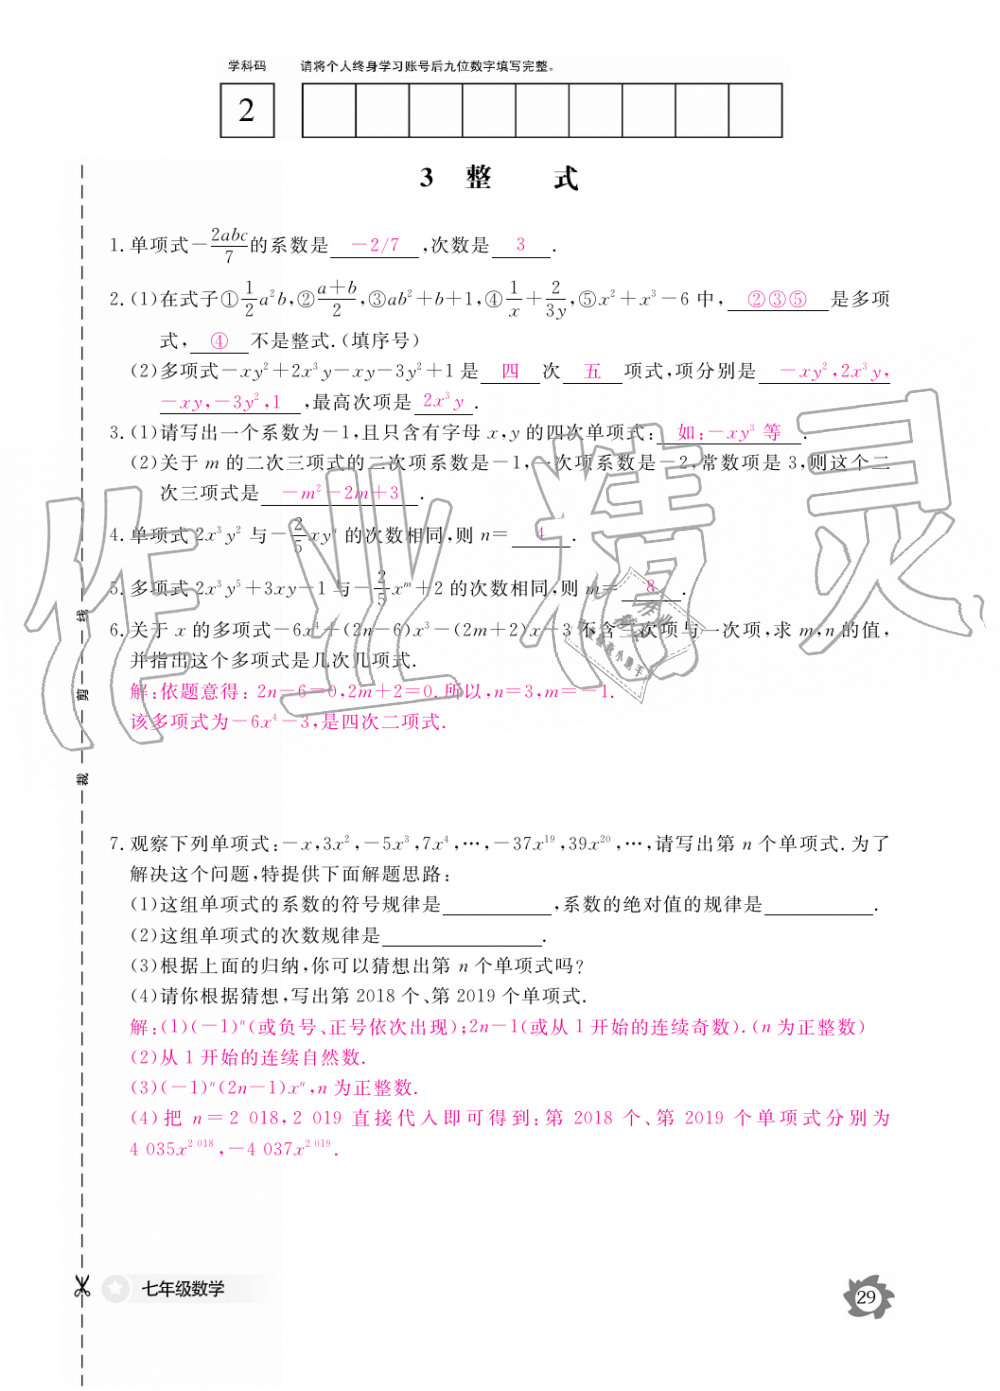 学科码 请将个人终身学习账号后九位数字填写完整。
2
3 整 式
1.单项式-2abc/7的系数是 -2/7 ,次数是 3 .
2.(1)在式子①1/2a²b,②(a+b)/2,③ab²+b+1,④1/x+2/3y,⑤x²+x³-6中, ②③⑤ 是多项
式, ④ 不是整式.(填序号)
(2)多项式-xy²+2x³y-xy-3y²+1是 四 次 五 项式,项分别是 -xy²,2x³y,
-xy,-3y²,1 ,最高次项是 2x³y .
3.(1)请写出一个系数为-1,且只含有字母x,y的四次单项式: 如:-xy³等 .
(2)关于m的二次三项式的二次项系数是-1,一次项系数是-2,常数项是3,则这个二
次三项式是 -m²-2m+3 .
4.单项式2x³y²与-2/5xyⁿ的次数相同,则n= 4 .
5.多项式2x³y⁵+3xy-1与-2/5xᵐ+2的次数相同,则m= 8 .
6.关于x的多项式-6x⁴+(2n-6)x³-(2m+2)x-3不含三次项与一次项,求m,n的值,
并指出这个多项式是几次几项式.
解:依题意得: 2n-6=0,2m+2=0.所以,n=3,m=-1.
该多项式为-6x⁴-3,是四次二项式.
7.观察下列单项式:-x,3x²,-5x³,7x⁴,…,-37x¹⁹,39x²⁰,…,请写出第n个单项式.为了
解决这个问题,特提供下面解题思路:
(1)这组单项式的系数的符号规律是 ,系数的绝对值的规律是 .
(2)这组单项式的次数规律是 .
(3)根据上面的归纳,你可以猜想出第n个单项式吗?
(4)请你根据猜想,写出第2018个、第2019个单项式.
解:(1)(-1)ⁿ(或负号、正号依次出现);2n-1(或从1开始的连续奇数).(n为正整数)
(2)从1开始的连续自然数.
(3)(-1)ⁿ(2n-1)xⁿ,n为正整数.
(4)把n=2 018,2 019直接代入即可得到:第2018个、第2019个单项式分别为
4 035x²⁰¹⁸,-4 037x²⁰¹⁹.
线
剪
裁
作业精灵
七年级数学
29